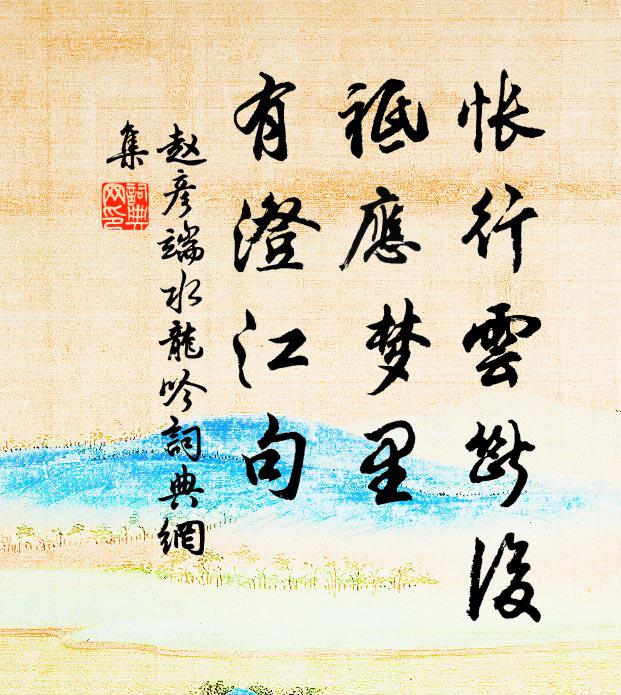 怅行雲斷後
祗應梦里
有澄江句
赵彦端水龍吟詞典網
集
詞典网印